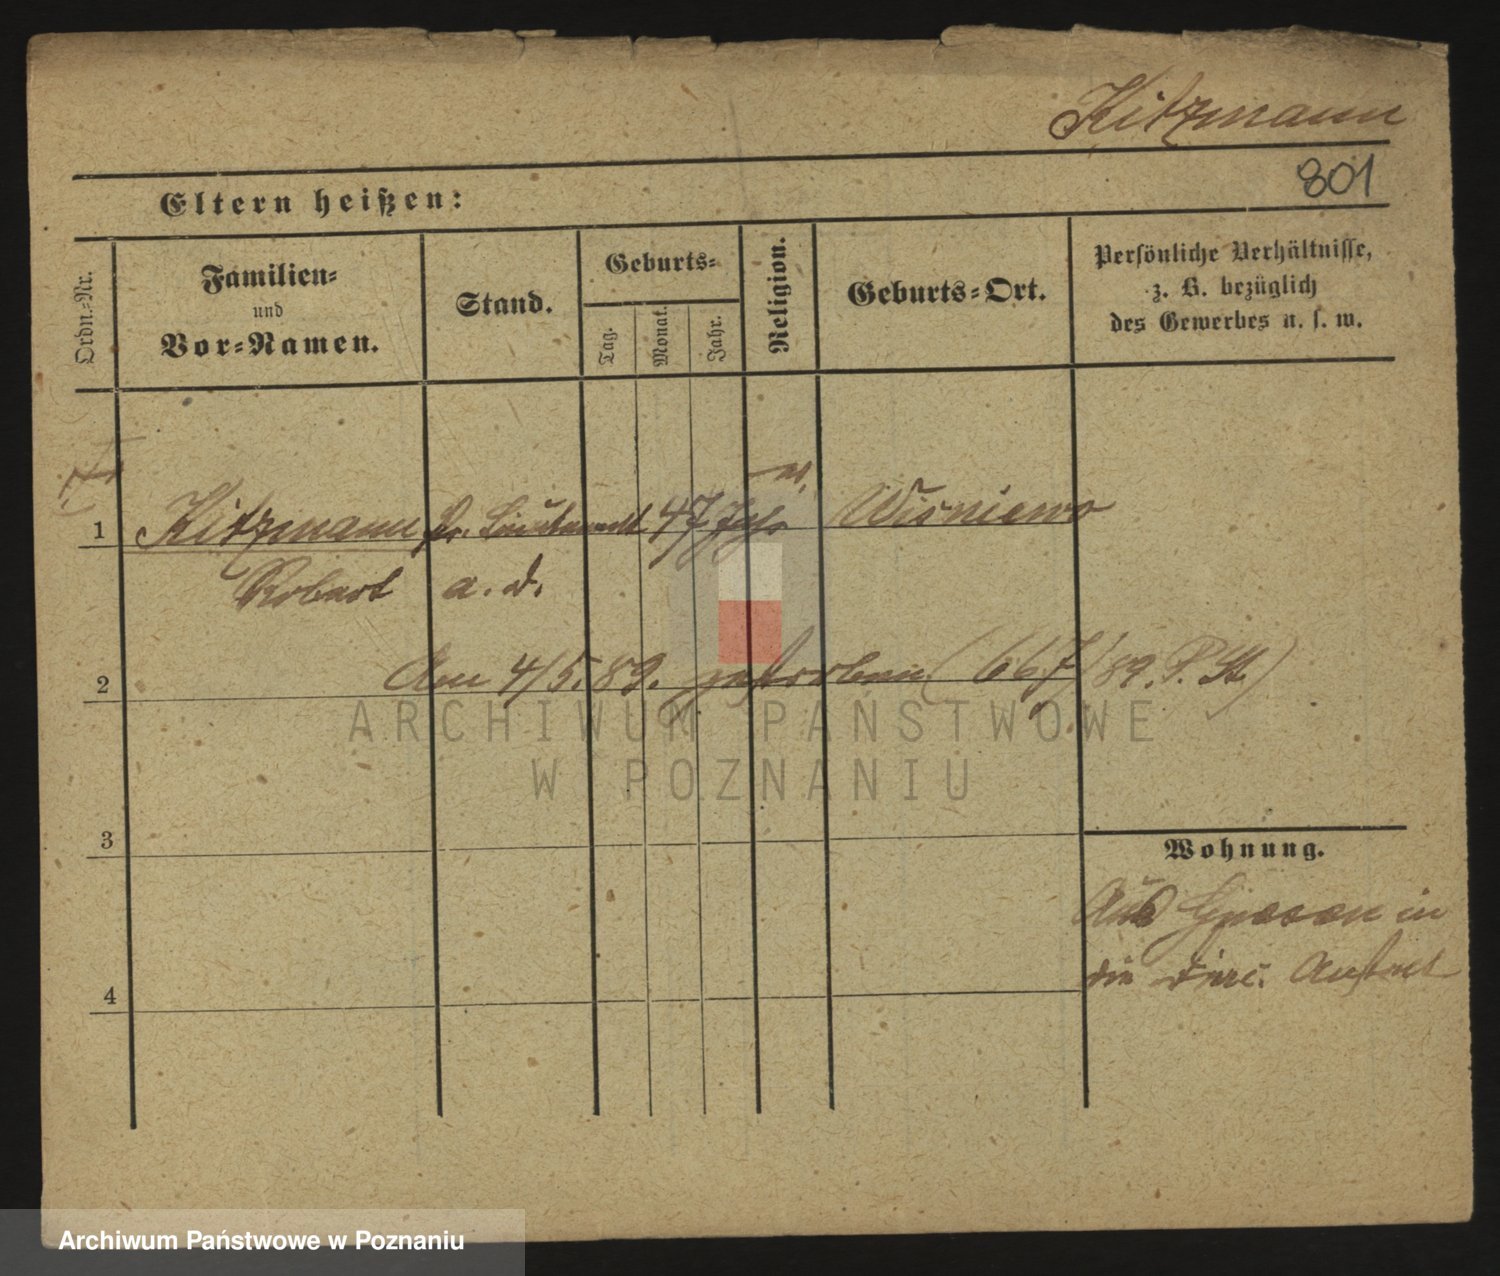 Kitzmann
801
Eltern heißen:
Ordn.-Nr.
Familien-
und
Vor-Namen.
Stand.
Geburts-
Tag.
Monat.
Jahr.
Religion.
Geburts-Ort.
Persönliche Verhältnisse,
z. B. bezüglich
des Gewerbes u. s. w.
1 Kitzmann Pr. Lieutenant 47 Jhr Wisniewo
Robert a. d.
2 Am 4/5. 89. gestorben (667/89. P. St.)
3
4
Wohnung.
Aus Gnesen in
die Anstalt
ARCHIWUM PAŃSTWOWE
W POZNANIU
Archiwum Państwowe w Poznaniu